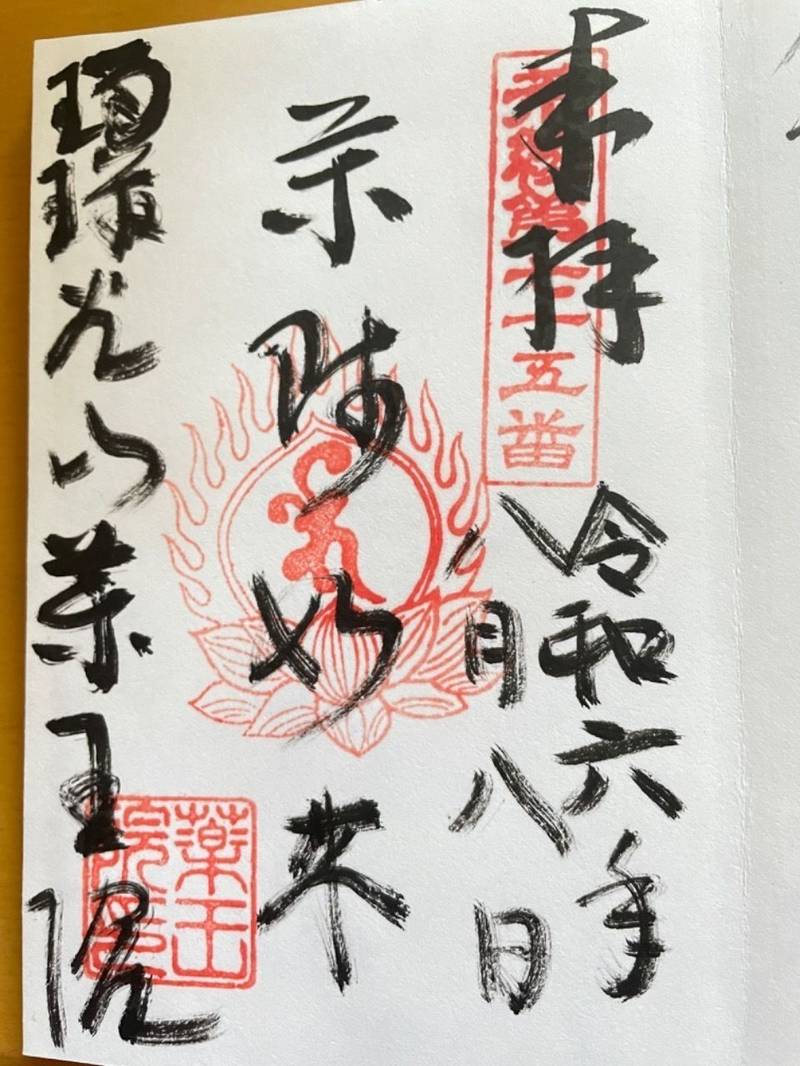 奉拝
五番
令和六年
八月八日
薬師如来
瑠璃光山薬王院
薬王
院印